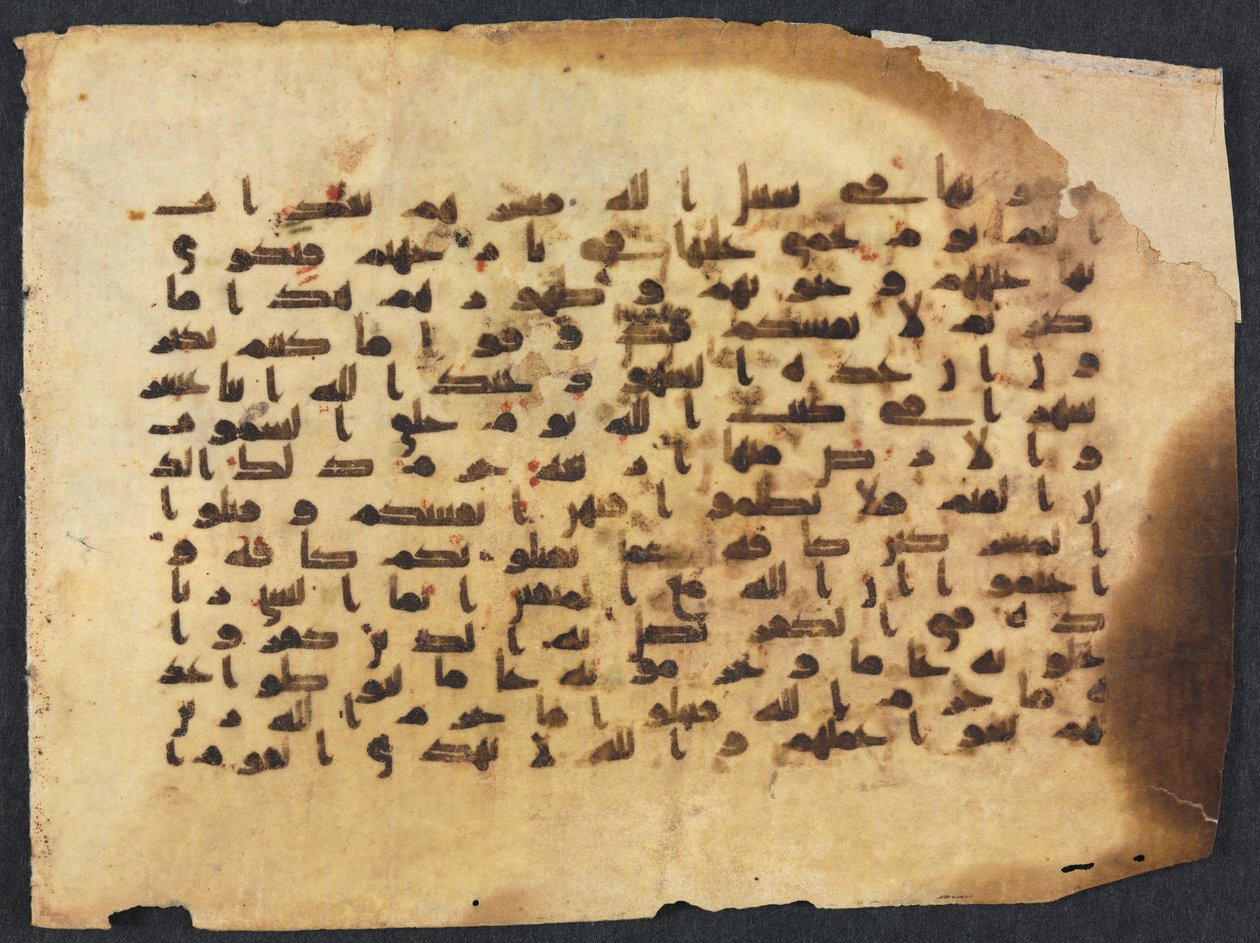 ونها في سبيل الله فبشرهم بعذاب
اليم يوم يحمى عليها في نار جهنم فتكوى
بها جباههم وجنوبهم وظهورهم هذا ما
كنزتم لانفسكم فذوقوا ما كنتم تكنز
ون ان عدة الشهور عند الله اثنا عشر
شهرا في كتب الله يوم خلق السموت
والارض منها اربعة حرم ذلك الد
ين القيم فلا تظلموا فيهن انفسكم وقتلوا
المشركين كافة كما يقتلونكم كافة و
اعلموا ان الله مع المتقين انما النسى زيا
دة في الكفر يضل به الذين كفروا
يحلونه عاما ويحرمونه عاما ليوطوا عد
ة ما حرم الله فيحلوا ما حرم الله زين
لهم سوا اعملهم والله لا يهدى القوم ا